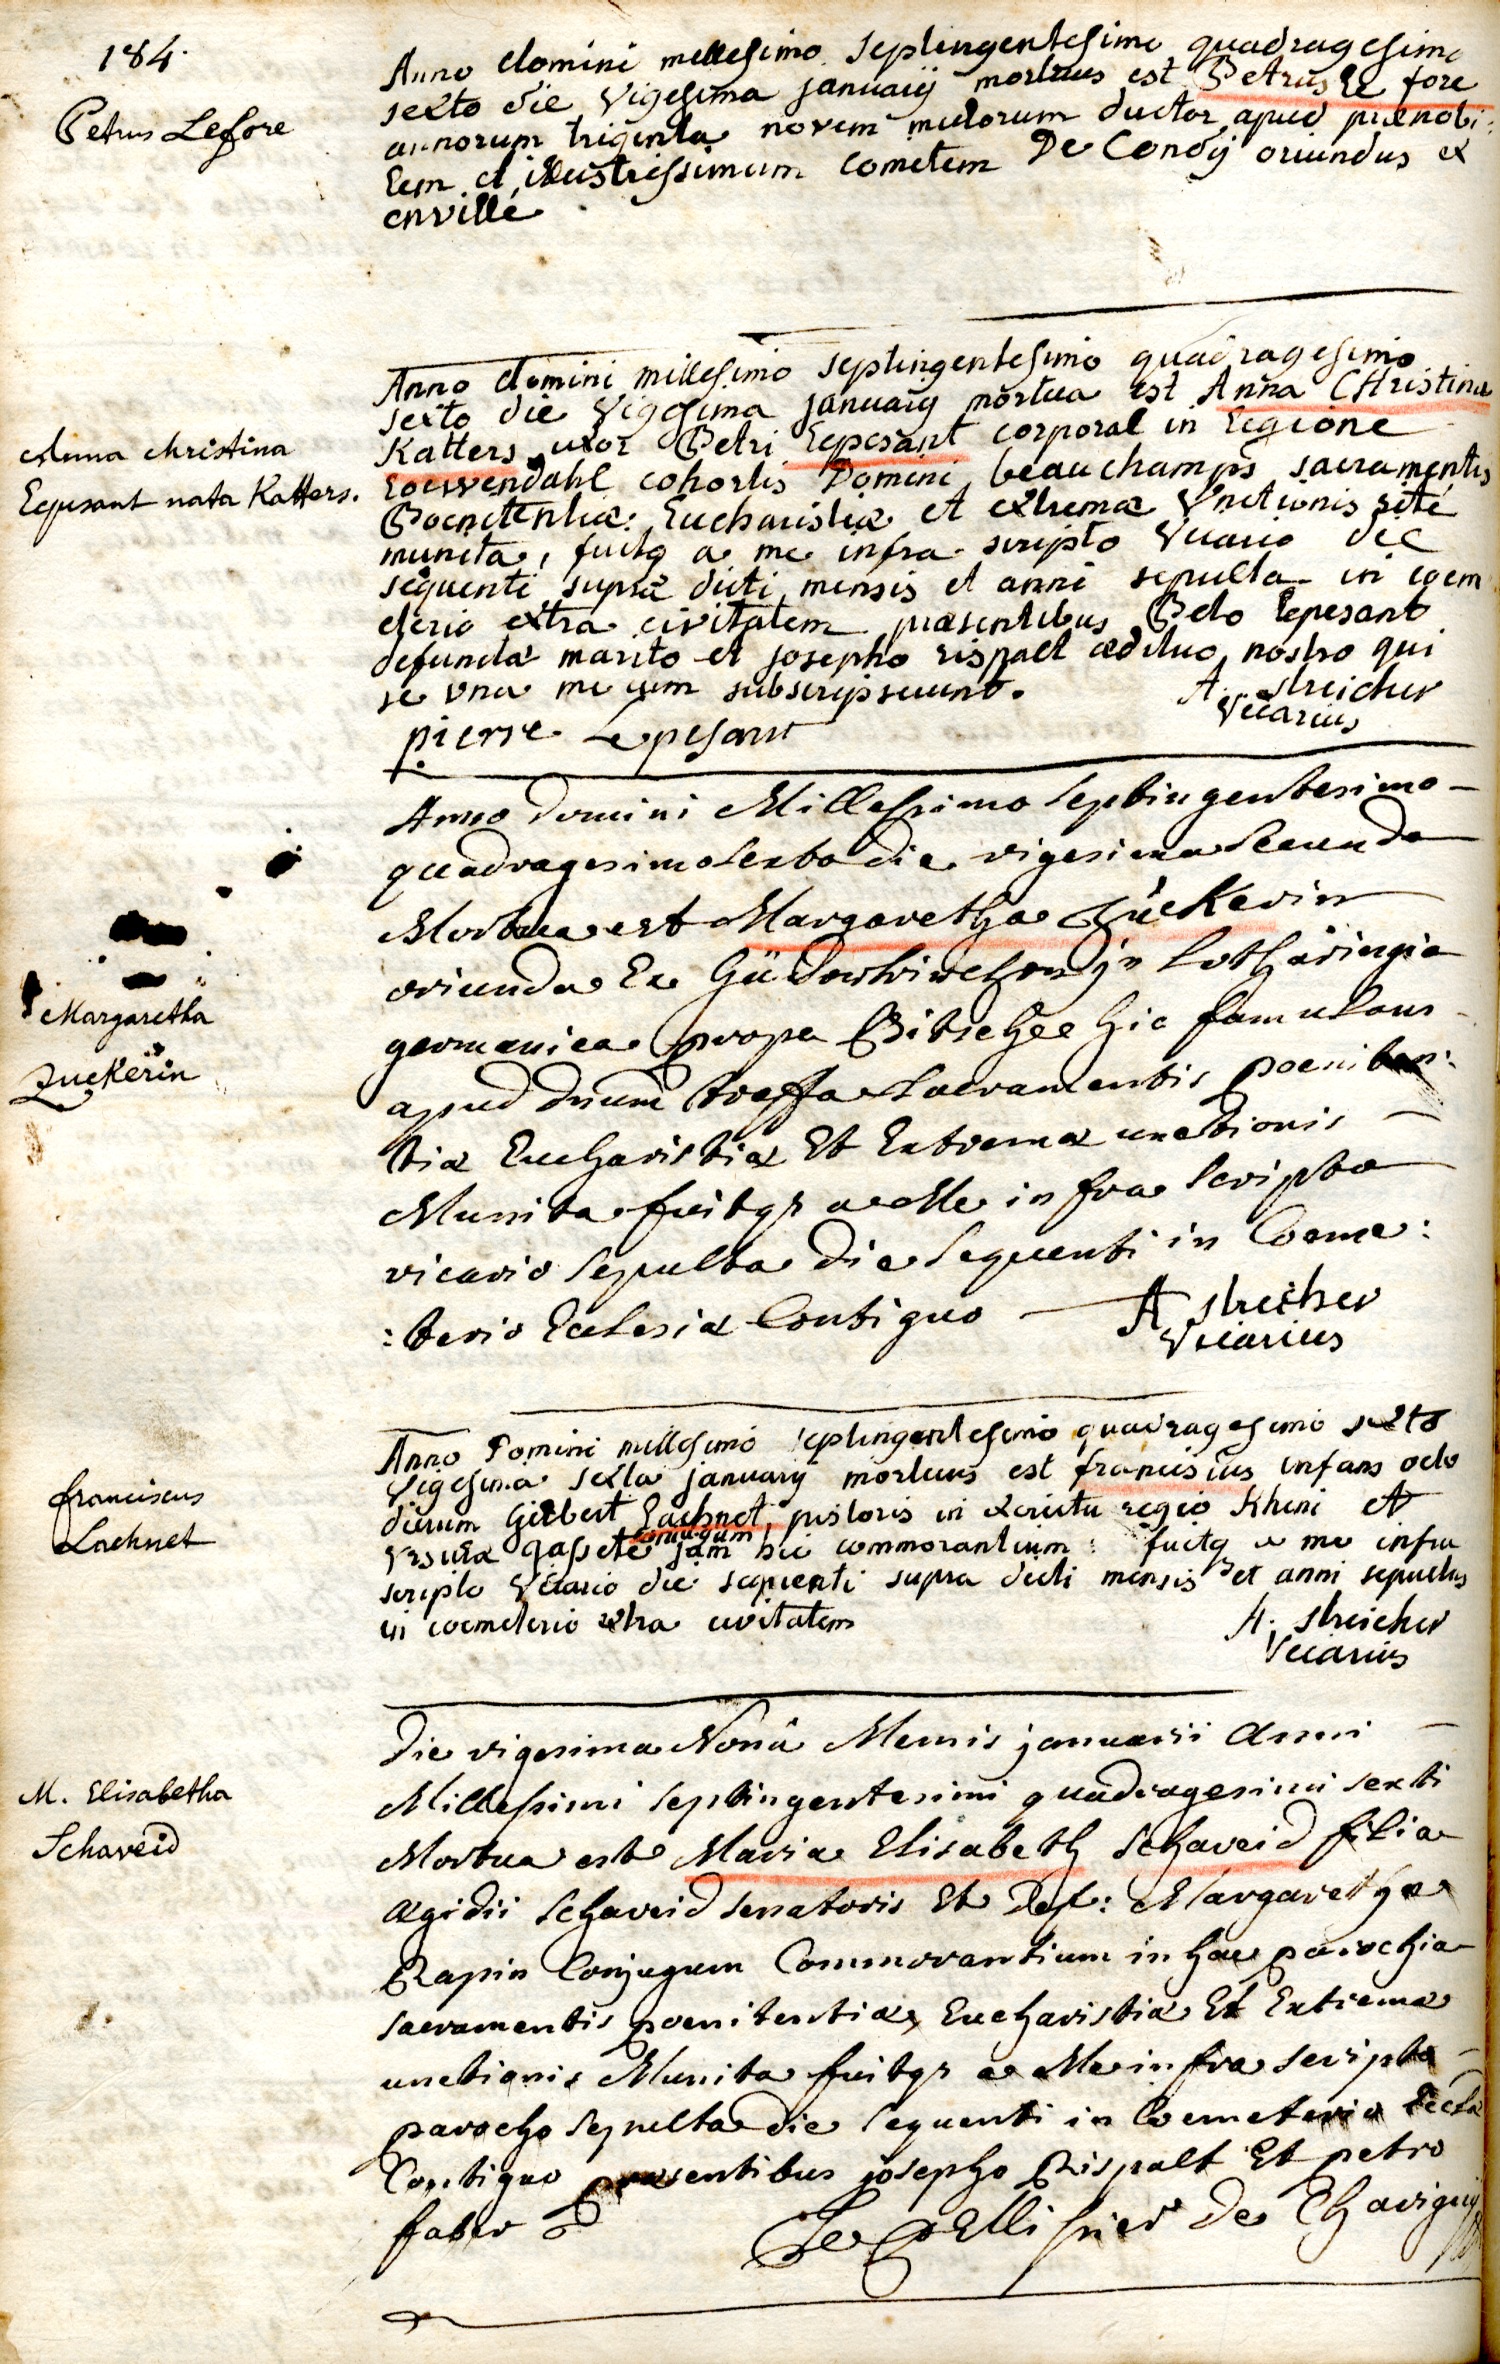 184.
Petrus Lefore
Anno domini millesimo septingentesimo quadragesimo
sexto die Vigesima januarij mortuus est Petrus le fore
annorum triginta novem mulorum ductor apud prænobi:
lem et illustrissimum cometem De Condij oriundus ex
enville
Anna Christina
Lepesant nata Katters.
Anno domini millesimo septingentesimo quadragesimo
sexto die Vigesima januarij mortua est Anna CHristina
Katters uxor Petri Lepesant corporal in Legione
Loewendahl cohortis Domini beauchamps sacramentis
Poenitentiæ Eucharistiæ et extremæ Vnctionis rité
munita, fuitq a me infra scripto Vicario die
sequenti supra dicti mensis et anni sepulta in coem
eterio extra civitatem præsentibus Peto lepesant
defunctæ marito et josepho rispalt ædituo nostro qui
se una me cum subscripserunt.
A. streicher
Vicarius
pierre Lepesant
Margaretha
Zuckerin
Anno Domini Millesimo septingentesimo
quadragesimo sexto die vigesima secunda
Mortua est Margaretha Zückerin
oriunda Ex jn Lotharingia
germanica prope Bitschee hic famulans
apud dnum treffa sacramentis poeniten:
tiæ Eucharistiæ Et Extremæ unctionis
Munita fuitq a Me infra scripto
vicario sepulta die sequenti in Coeme:
:terio Ecclesiæ Contiguo
A streicher
Vicarius
franciscus
Lachnet
Anno Domini millesimo septingentesimo quadragesimo sexto
Vigesima sexta januarij mortuus est franciscus infans octo
dierum Gilbert Lachnet pistoris in exercitu regio Rheni et
conjugum
Vrsulæ gassete jam hic commorantium: fuitq a me infra
scripto Vicario die sequenti supra dicti mensis et anni sepultus
in coemeterio extra civitatem
A. streicher
Vicarius
M. Elisabetha
Schaveid
Die vigesima Nonâ Mensis januarii Anni
Millesimi septingentesimi quadragesimi sexti
Mortua est Maria Elisabeth Schaveid filia
Ægidii Schaveid senatoris Et Def: Margarethæ
Rapin Conjugum Commorantium in hac parochia
sacramentis poenitentiæ, Eucharistiæ Et Extremæ
unctionis Munita fuitq a Me infra scripto
parocho sepulta die sequenti in Coemeterio Eccla
Contiguo præsentibus josepho Rispalt Et petro
faber
Le pellisrier De Chavigny